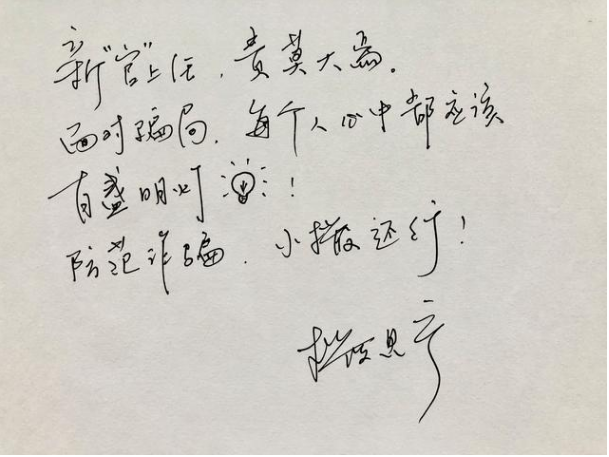 新“官”上任，责莫大焉。
面对骗局，每个人心中都应该
有盏明灯！
防范诈骗，小撒还行！
撒贝宁